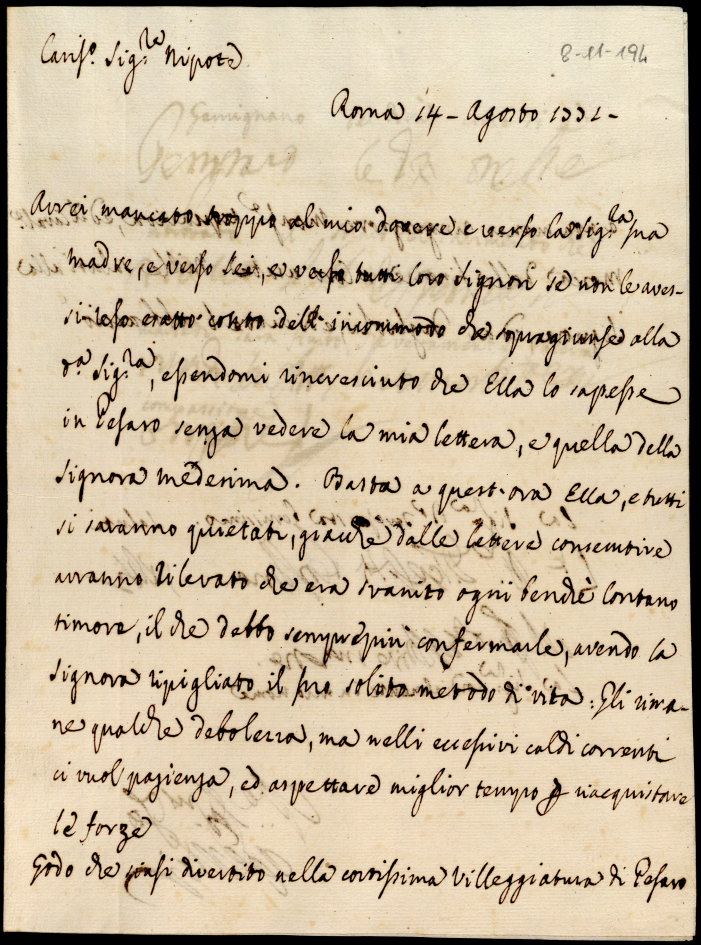 8-11-194
Cariss.º Sig.re Nipote
Roma 14 - Agosto 1771 -
Avrei mancato troppo al mio dovere e verso la Sig.ra sua
madre, e verso Lei, e verso tutti loro Signori se non le aves-
si reso esatto conto dell' incommodo che sopragiunse alla
d.a Sig.ra, essendomi rincresciuto che Ella lo sapesse
in Pesaro senza vedere la mia lettera, e quella della
Signora medesima. Basta a quest'ora Ella, e tutti
si saranno quietati, giacche dalle lettere consecutive
avranno rilevato che era svanito ogni benche lontano
timore, il che debbo semprepiu confermarle, avendo la
Signora ripigliato il suo solito metodo di vita: Gli rima-
ne qualche debolezza, ma nelli eccessivi caldi correnti
ci vuol pazienza, ed aspettare miglior tempo p riacquistare
le forze
Godo che siasi divertito nella cortissima Villeggiatura di Pesaro